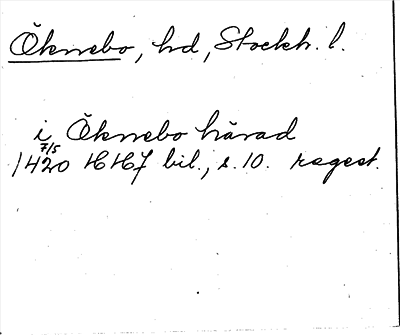 Öknebo, hd, Stockh. l.
i Öknebo härad
7/5
1420 HH7 bil., s. 10. regest.